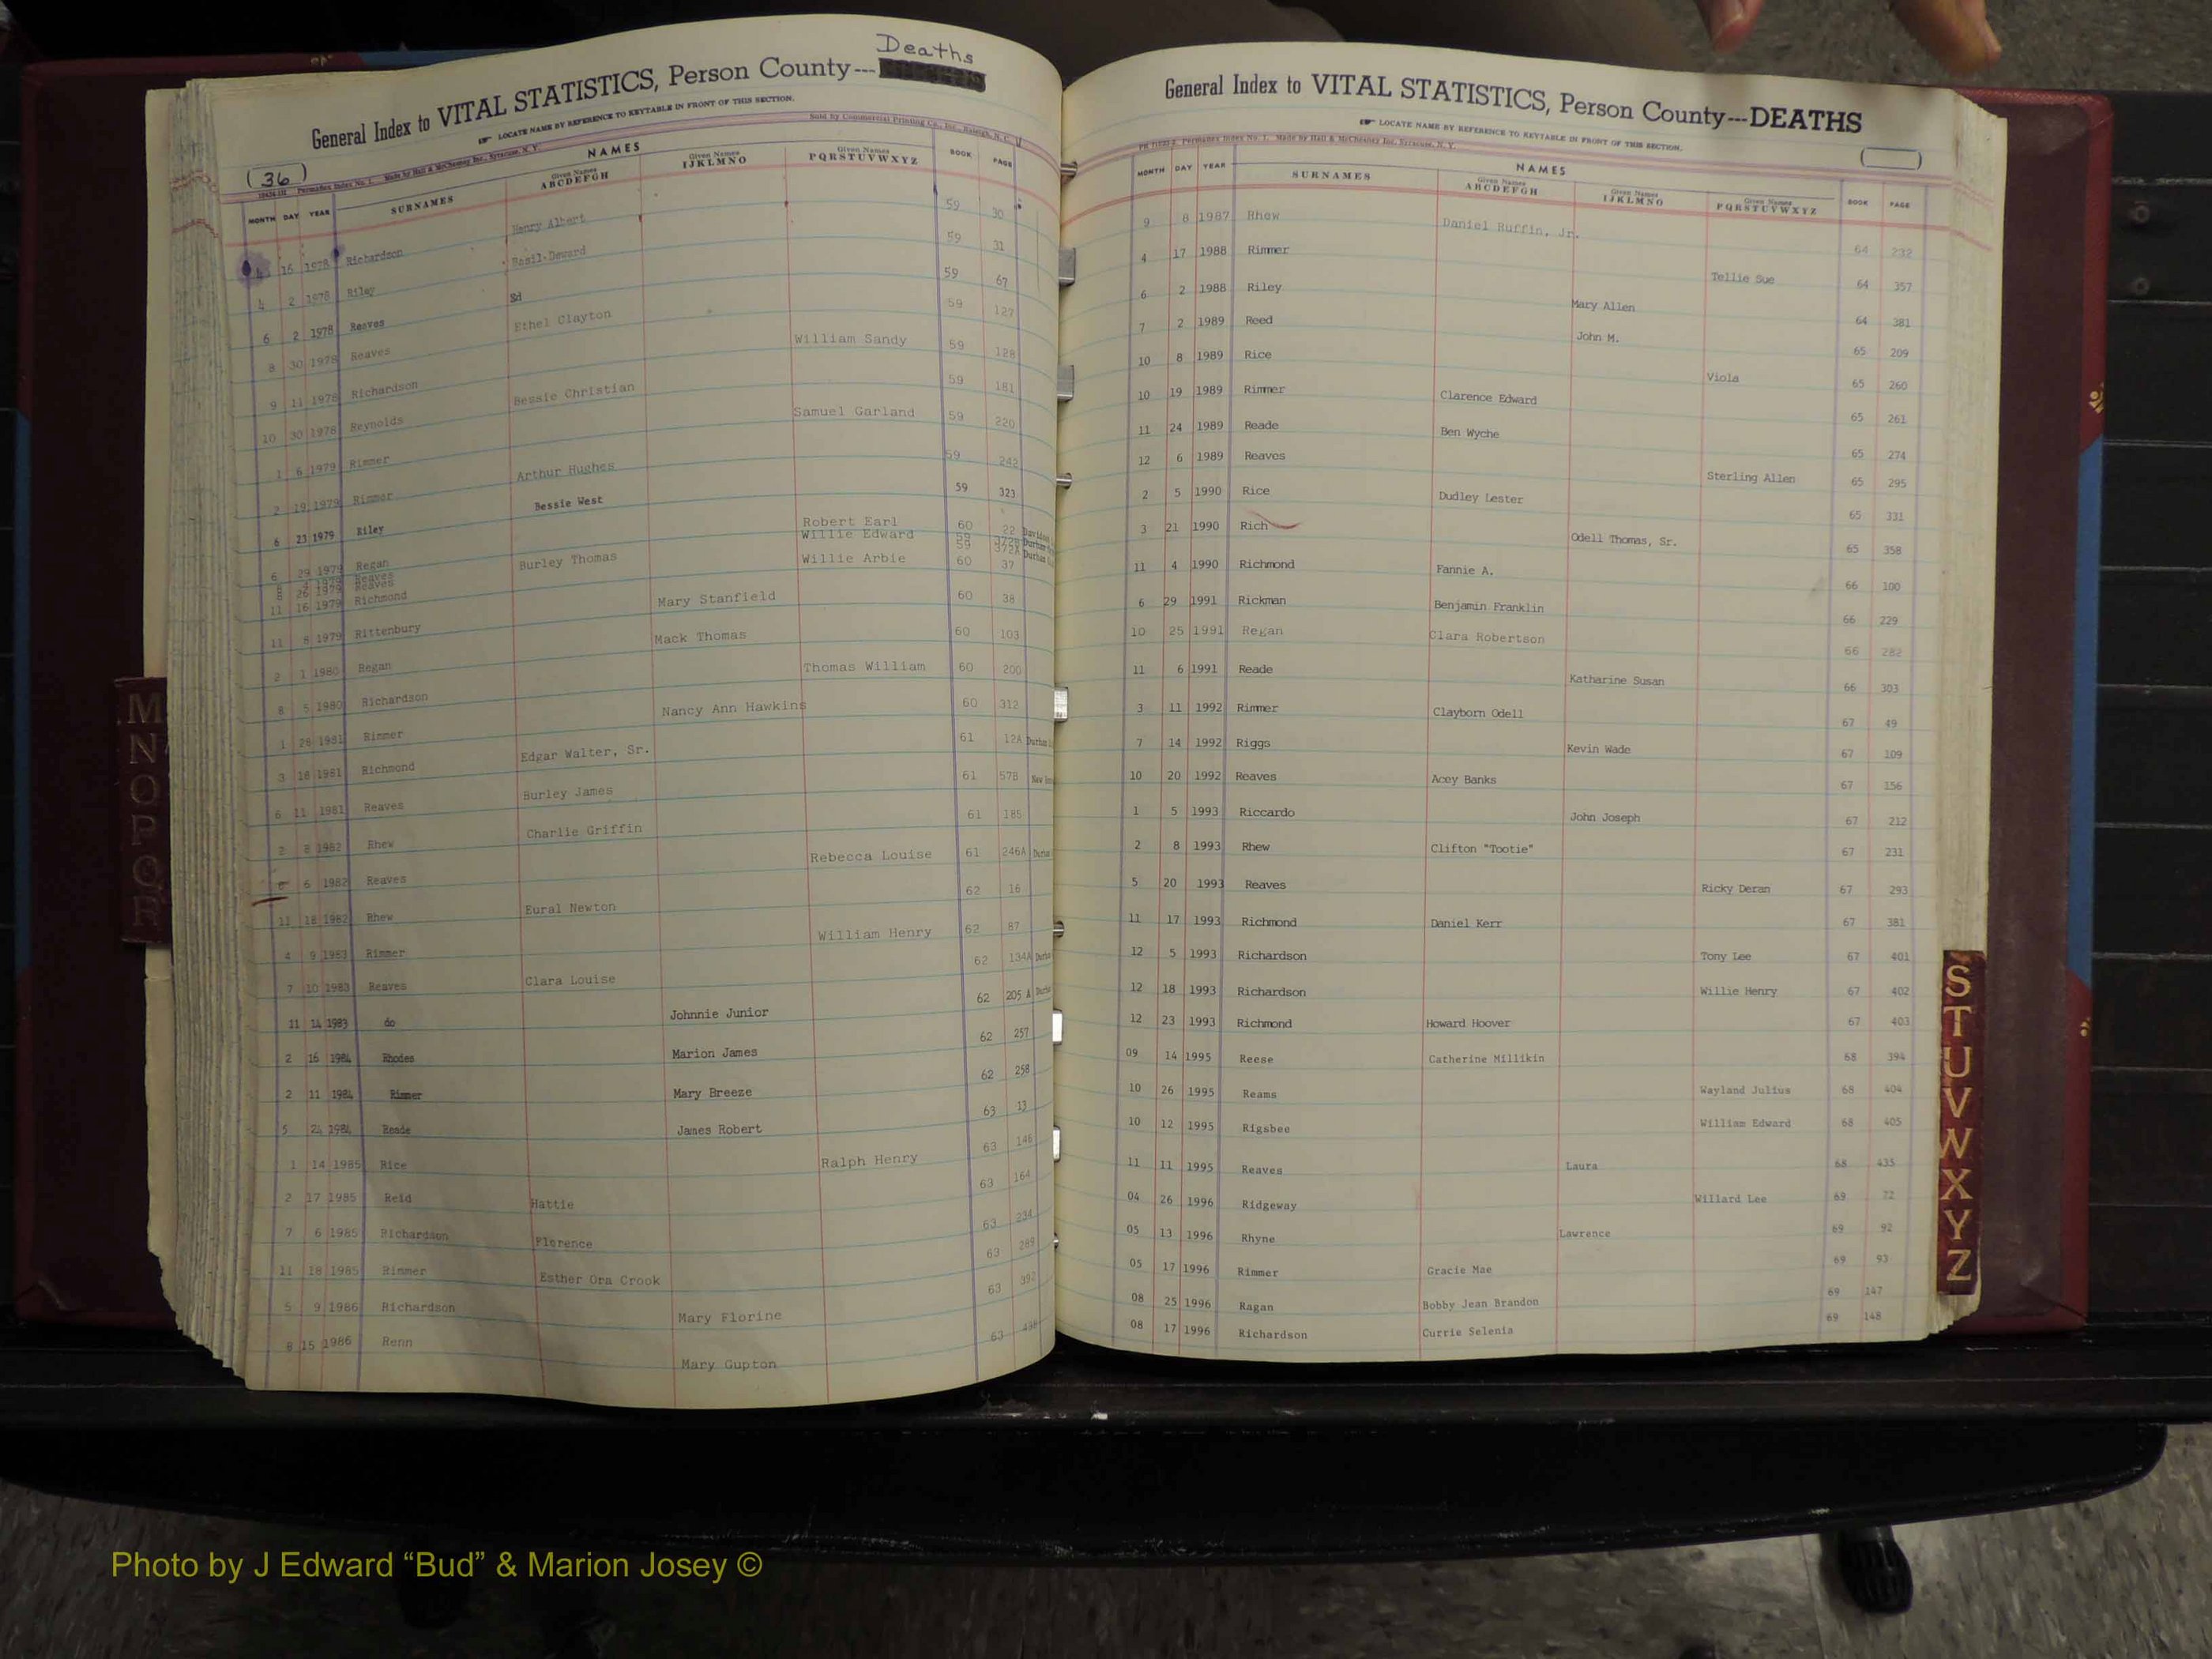 Deaths
General Index to VITAL STATISTICS, Person County---
LOCATE NAME BY REFERENCE TO KEYTABLE IN FRONT OF THIS SECTION.
Sold by Commercial Printing Co., Inc., Raleigh, N. C.
(36) Permadex Index No. 1. Made by Hall & McChesney Inc., Syracuse, N. Y.
NAMES
MONTH DAY YEAR SURNAMES Given Names ABCDEFGH Given Names IJKLMNO Given Names PQRSTUVWXYZ BOOK PAGE
4 16 1978 Richardson Henry Albert 59 30
4 2 1978 Riley Basil Deward 59 31
6 2 1978 Reaves Ed 59 67
8 30 1978 Reaves Ethel Clayton 59 127
9 11 1978 Richardson William Sandy 59 128
10 30 1978 Reynolds Bessie Christian 59 181
1 6 1979 Rimmer Samuel Garland 59 220
2 19 1979 Rimmer Arthur Hughes 59 242
6 23 1979 Riley Bessie West 59 323
6 29 1979 Regan Robert Earl 60 22
Reaves Willie Edward 59
8 26 1979 Reaves Burley Thomas 59 372A Durham
11 16 1979 Richmond Willie Arbie 60 37
11 8 1979 Rittenbury Mary Stanfield 60 38
2 1 1980 Regan Mack Thomas 60 103
8 5 1980 Richardson Thomas William 60 200
1 28 1981 Rimmer Nancy Ann Hawkins 60 312
3 18 1981 Richmond Edgar Walter, Sr. 61 12A Durham
6 11 1981 Reaves Burley James 61 57B New
2 8 1982 Rhew Charlie Griffin 61 185
6 6 1982 Reaves Rebecca Louise 61 246A Durha
11 18 1982 Rhew Eural Newton 62 16
4 9 1983 Rimmer William Henry 62 87
7 10 1983 Reaves Clara Louise 62 134A Durha
11 14 1983 do Johnnie Junior 62 205 A Durha
2 16 1984 Rhodes Marion James 62 257
2 11 1984 Rimmer Mary Breeze 62 258
5 24 1984 Reade James Robert 63 13
1 14 1985 Rice Ralph Henry 63 146
2 17 1985 Reid Hattie 63 164
7 6 1985 Richardson Florence 63 234
11 18 1985 Rimmer Esther Ora Crook 63 289
5 9 1986 Richardson Mary Florine 63 392
8 15 1986 Renn Mary Gupton 63
General Index to VITAL STATISTICS, Person County---DEATHS
LOCATE NAME BY REFERENCE TO KEYTABLE IN FRONT OF THIS SECTION.
Permadex Index No. 1. Made by Hall & McChesney Inc. Syracuse, N. Y.
NAMES
MONTH DAY YEAR SURNAMES Given Names ABCDEFGH Given Names IJKLMNO Given Names PQRSTUVWXYZ BOOK PAGE
9 8 1987 Rhew Daniel Ruffin, Jr. 64 232
4 17 1988 Rimmer Tellie Sue 64 357
6 2 1988 Riley Mary Allen 64 381
7 2 1989 Reed John M. 65 209
10 8 1989 Rice Viola 65 260
10 19 1989 Rimmer Clarence Edward 65 261
11 24 1989 Reade Ben Wyche 65 274
12 6 1989 Reaves Sterling Allen 65 295
2 5 1990 Rice Dudley Lester 65 331
3 21 1990 Rich Odell Thomas, Sr. 65 358
11 4 1990 Richmond Fannie A. 66 100
6 29 1991 Rickman Benjamin Franklin 66 229
10 25 1991 Regan Clara Robertson 66 282
11 6 1991 Reade Katharine Susan 66 303
3 11 1992 Rimmer Clayborn Odell 67 49
7 14 1992 Riggs Kevin Wade 67 109
10 20 1992 Reaves Acey Banks 67 156
1 5 1993 Riccardo John Joseph 67 212
2 8 1993 Rhew Clifton "Tootie" 67 231
5 20 1993 Reaves Ricky Deran 67 293
11 17 1993 Richmond Daniel Kerr 67 381
12 5 1993 Richardson Tony Lee 67 401
12 18 1993 Richardson Willie Henry 67 402
12 23 1993 Richmond Howard Hoover 67 403
09 14 1995 Reese Catherine Millikin 68 394
10 26 1995 Reams Wayland Julius 68 404
10 12 1995 Rigsbee William Edward 68 405
11 11 1995 Reaves Laura 68 435
04 26 1996 Ridgeway Willard Lee 69 72
05 13 1996 Rhyne Lawrence 69 92
05 17 1996 Rimmer Gracie Mae 69 93
08 25 1996 Ragan Bobby Jean Brandon 69 147
08 17 1996 Richardson Currie Selenia 69 148
M
N
O
P
Q
R
S
T
U
V
W
X
Y
Z
Photo by J Edward “Bud” & Marion Josey ©